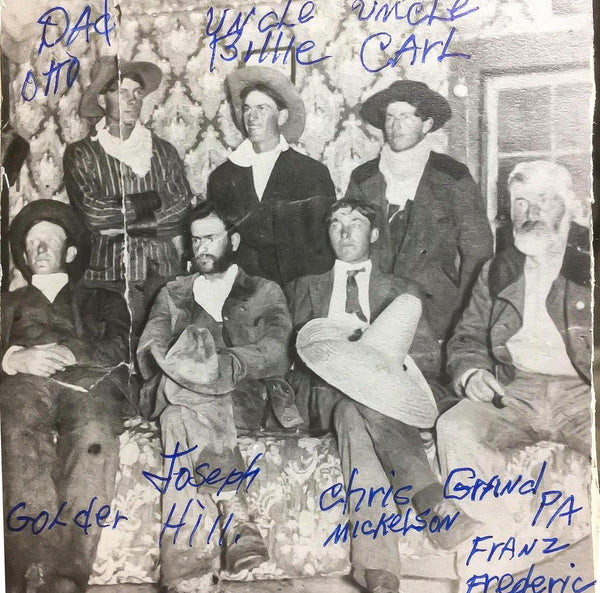 DAd
OTTO
UNCLE
Billie
UNCLE
CARL
Golder
Joseph
Hill.
Chris
MICKELSON
GRAND
PA
FRANZ
Frederic